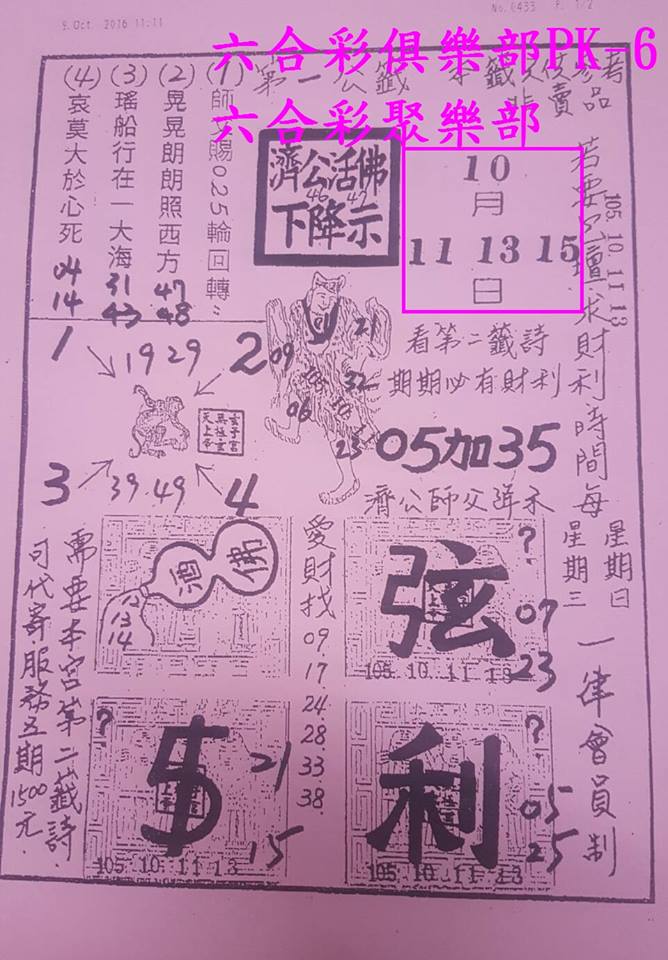 9. Oct. 2016 11:11
No. 6433 P. 1/2
六合彩俱樂部PK-6
六合彩聚樂部
第一公籤
本籤
參考
品
(1)師父賜025輪回轉
(2)晃晃朗朗照西方
47
48
(3)瑤船行在一大海
31
43
(4)哀莫大於心死
04
14
濟公活佛
46 47
下降示
10
月
11 13 15
日
105 10 11 13
求財利時間每
星期日
星期三
一律會員制
看第二籤詩
期期必有財利
05加35
濟公師父降示
1
19 29
2
3
39.49
4
09
21
32
06
23
愛財找
09.
17.
24.
28
33
38.
佛
酒
12
13
14
?
弦
07
23
105 10 11 13
?
5
21
15
105 10 11 13
?
利
05
25
105 10 11 13
需要本宮第二籤詩
可代寄服務五期1500元